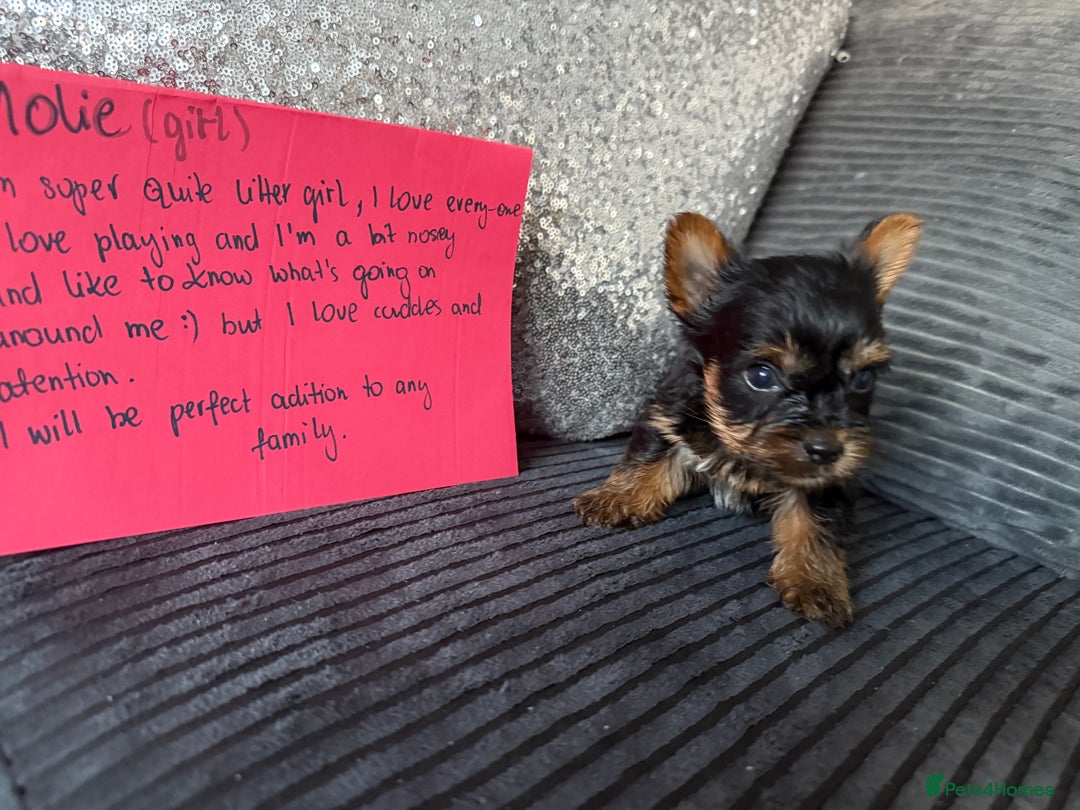 Molie (girl)
m super Quite litter girl, I love every-one
love playing and I'm a bit nosey
and like to know what's going on
around me :) but I love cuddles and
atention.
I will be perfect adition to any
family.
Pets4Homes